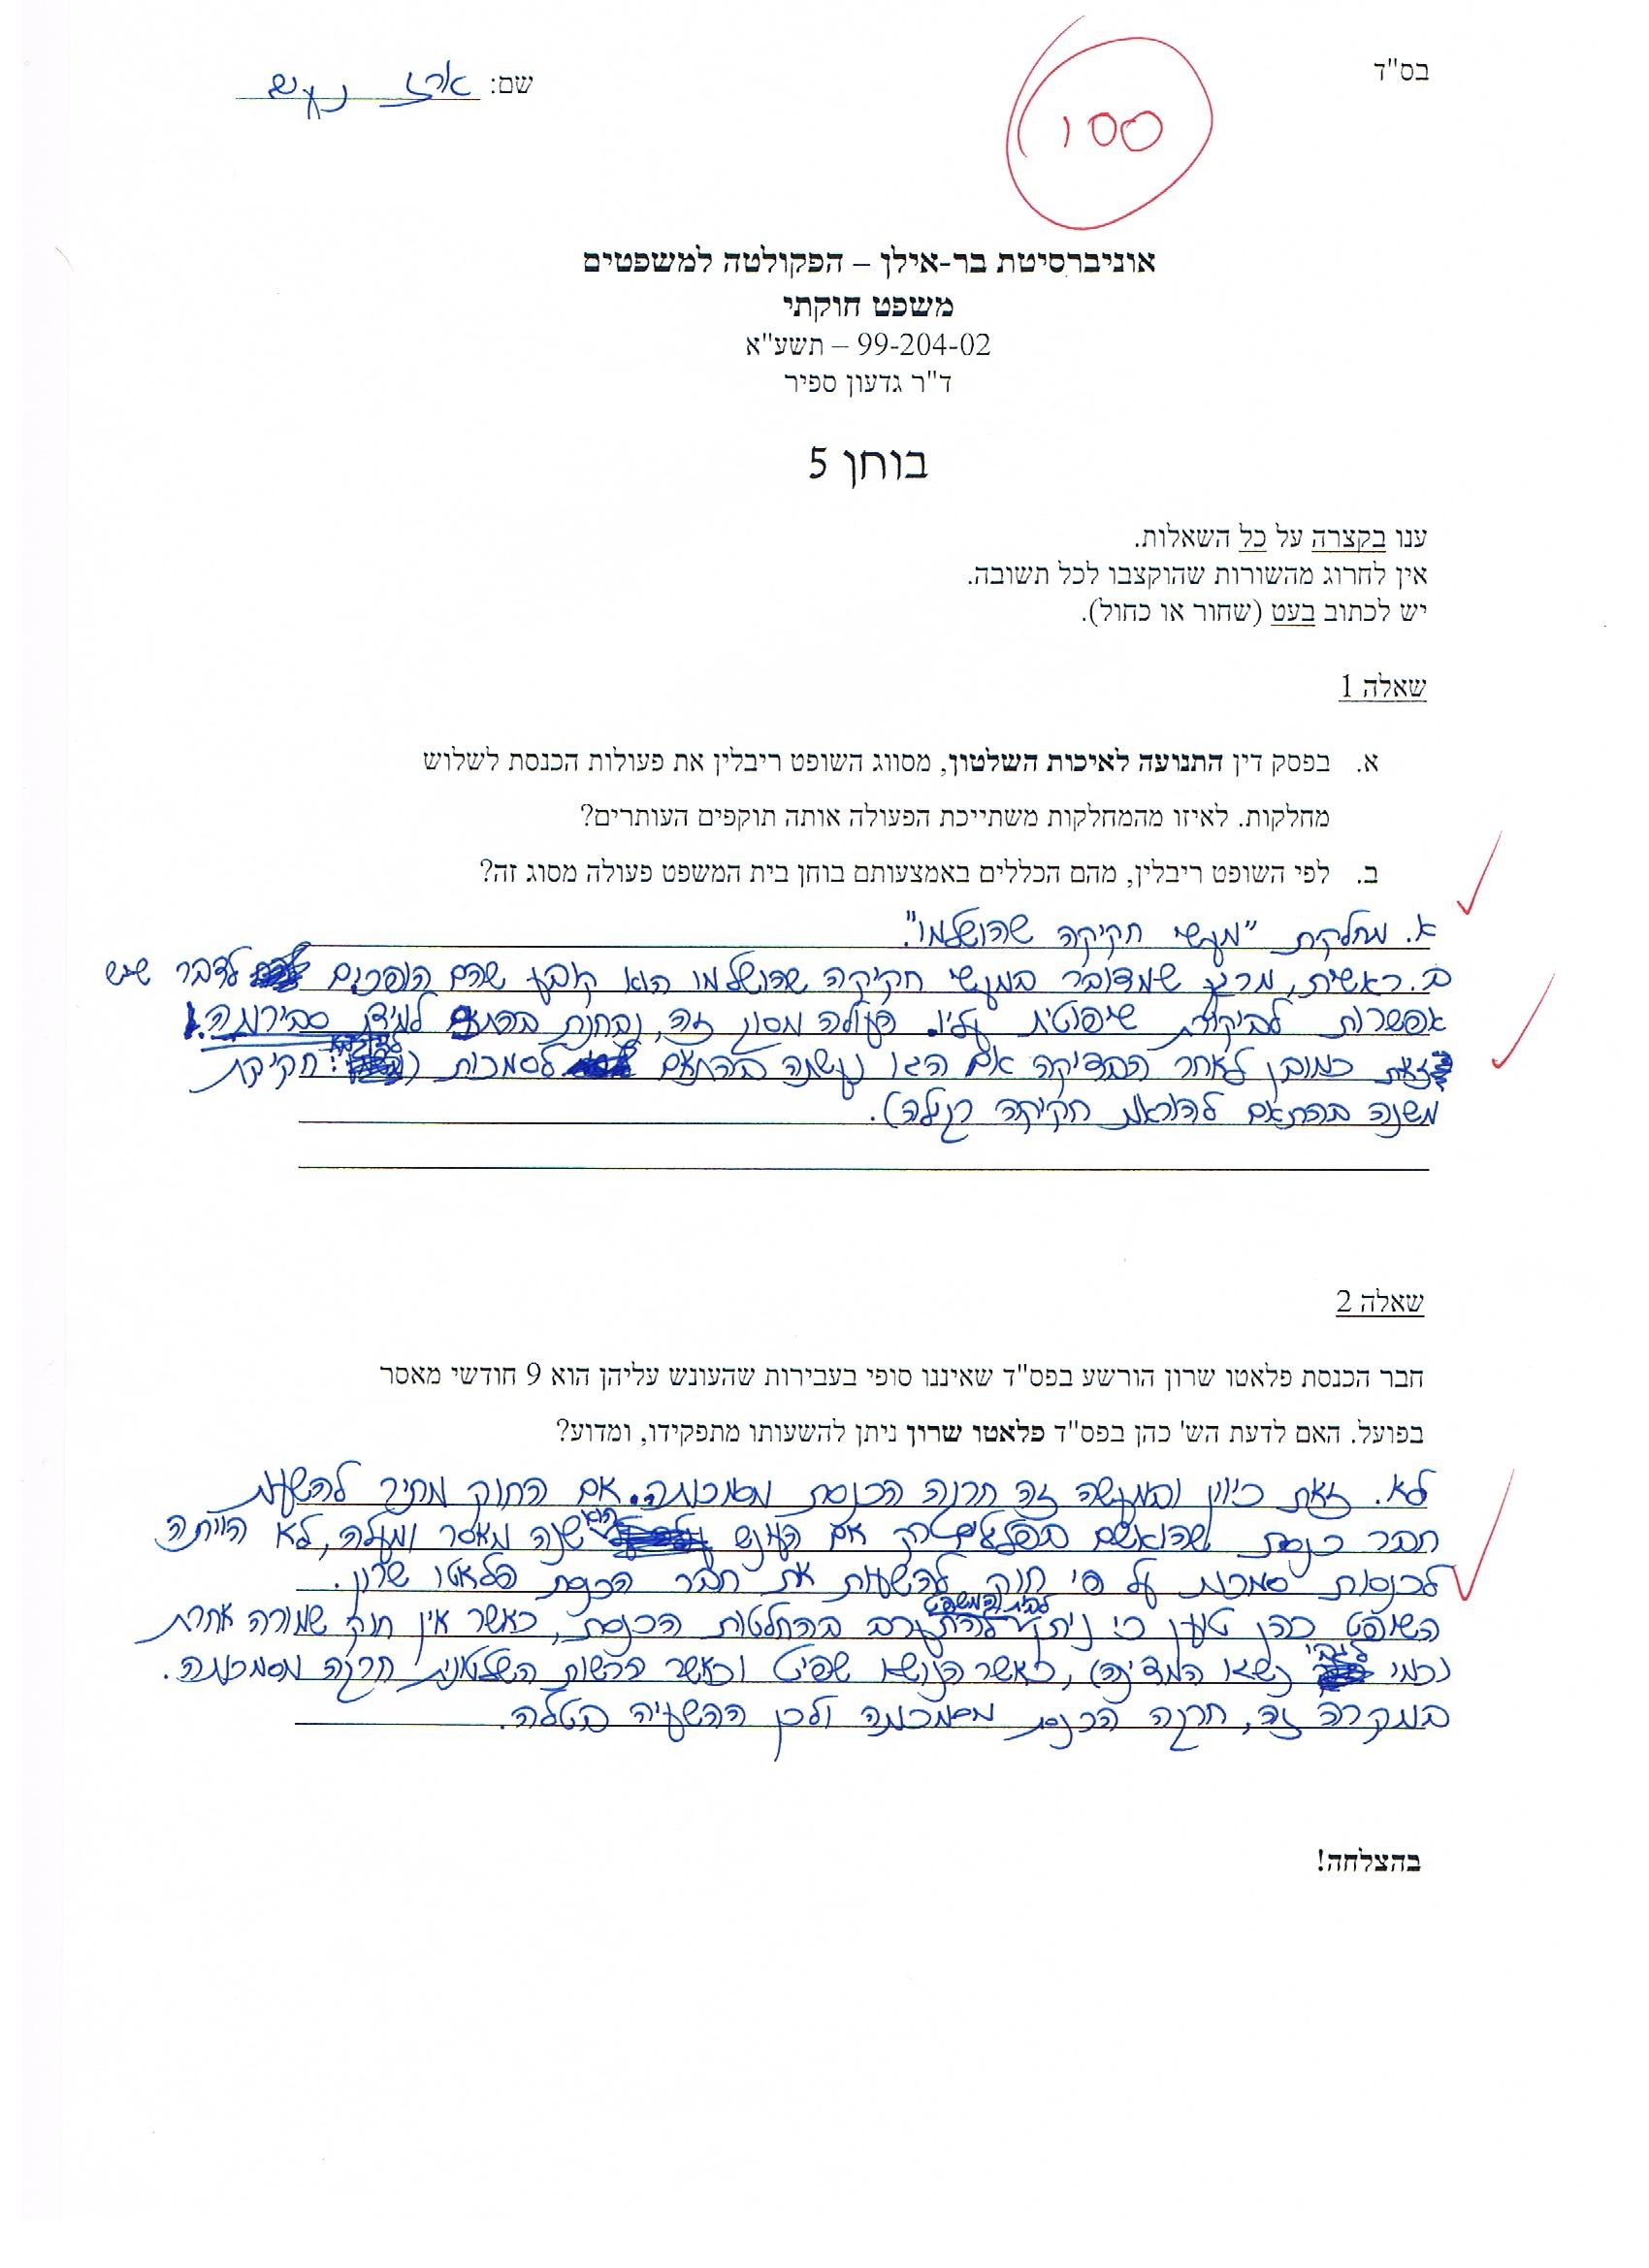 בס"ד
שם: ארז נעים
100
אוניברסיטת בר-אילן – הפקולטה למשפטים
משפט חוקתי
99-204-02 – תשע"א
ד"ר גדעון ספיר
בוחן 5
ענו בקצרה על כל השאלות.
אין לחרוג מהשורות שהוקצבו לכל תשובה.
יש לכתוב בעט (שחור או כחול).
שאלה 1
א. בפסק דין התנועה לאיכות השלטון, מסווג השופט ריבלין את פעולות הכנסת לשלוש
מחלקות. לאיזו מהמחלקות משתייכת הפעולה אותה תוקפים העותרים?
ב. לפי השופט ריבלין, מהם הכללים באמצעותם בוחן בית המשפט פעולה מסוג זה?
א. מחלקת "מעשי חקיקה שהושלמו".
ב. ראשית, מרגע שמדובר במעשי חקיקה שהושלמו הוא קובע שהם הופכים לדבר שיש
אפשרות לביקורת שיפוטית עליו. פעולה מסוג זה, נבחנת בהתאם למידת סבירותה.
זאת כמובן לאחר הבדיקה אם היא נעשתה בהתאם לסמכות (לדוגמא: חקיקת
משנה בהתאם להוראות חקיקה רגילה).
שאלה 2
חבר הכנסת פלאטו שרון הורשע בפס"ד שאיננו סופי בעבירות שהעונש עליהן הוא 9 חודשי מאסר
בפועל. האם לדעת הש' כהן בפס"ד פלאטו שרון ניתן להשעותו מתפקידו, ומדוע?
לא. זאת כיוון ובמעשה זה חרגה הכנסת מסמכותה. אם החוק מתיר להשעות
חבר כנסת שהואשם בפלילים רק אם העונש הוא שנה מאסר ומעלה, לא הייתה
לכנסת סמכות על פי חוק להשעות את חבר הכנסת פלאטו שרון.
השופט כהן טוען כי ניתן לבית המשפט להתערב בהחלטות הכנסת, כאשר אין חוק שמורה אחרת
(כמו לגבי נשיא המדינה), כאשר הנושא שפיט וכאשר הרשות השלטונית חרגה מסמכותה.
במקרה זה, חרגה הכנסת מסמכותה ולכן ההשעיה בטלה.
בהצלחה!